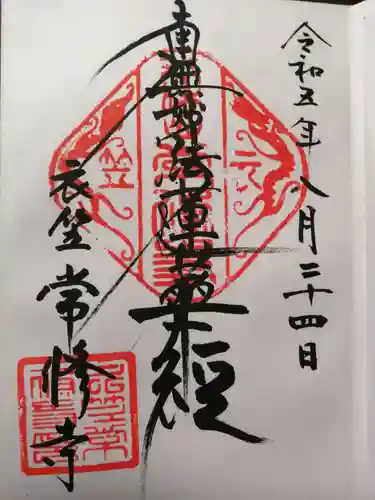 令和五年八月二十四日
南無妙法蓮華経
衣笠常修寺
衣
笠